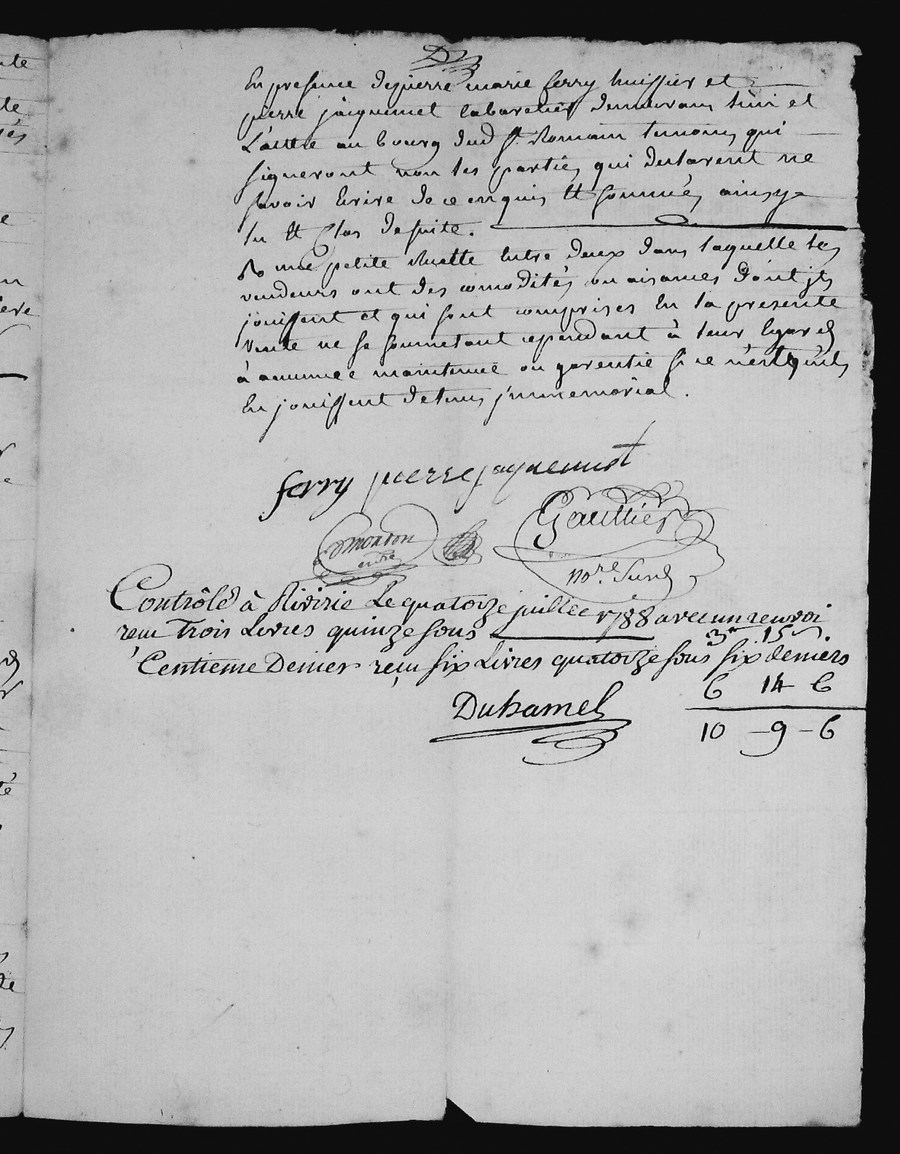 En presence de pierre marie ferry huissier et
pierre jacquemet cabaretier demeurans l'un et
L'autre au bourg dud St. Romain temoins qui
signeront non les parties qui declarent ne
savoir ecrire de ce enquis et sommés ainsy
lu et Clos de suite.
une petite ruette entre deux dans laquelle les
vendeurs ont des comodités ou aisances dont ils
jouissent et qui sont comprises en la presente
vente ne se soumetant cependant à leur egard
à aucunne maintenue ou garentie si ce n'est qu'ils
En jouissent de tems jmmemorial.
ferry pierre jaquemet
Gaultier
nore.
Contrôlé à Riverie Le quatorze juillet 1788 avec un renvoi
reçu Trois Livres quinze sous 3 15
Centieme Denier reçu six Livres quatorze sous six deniers
6 14 6
Duhamel
10 - 9 - 6